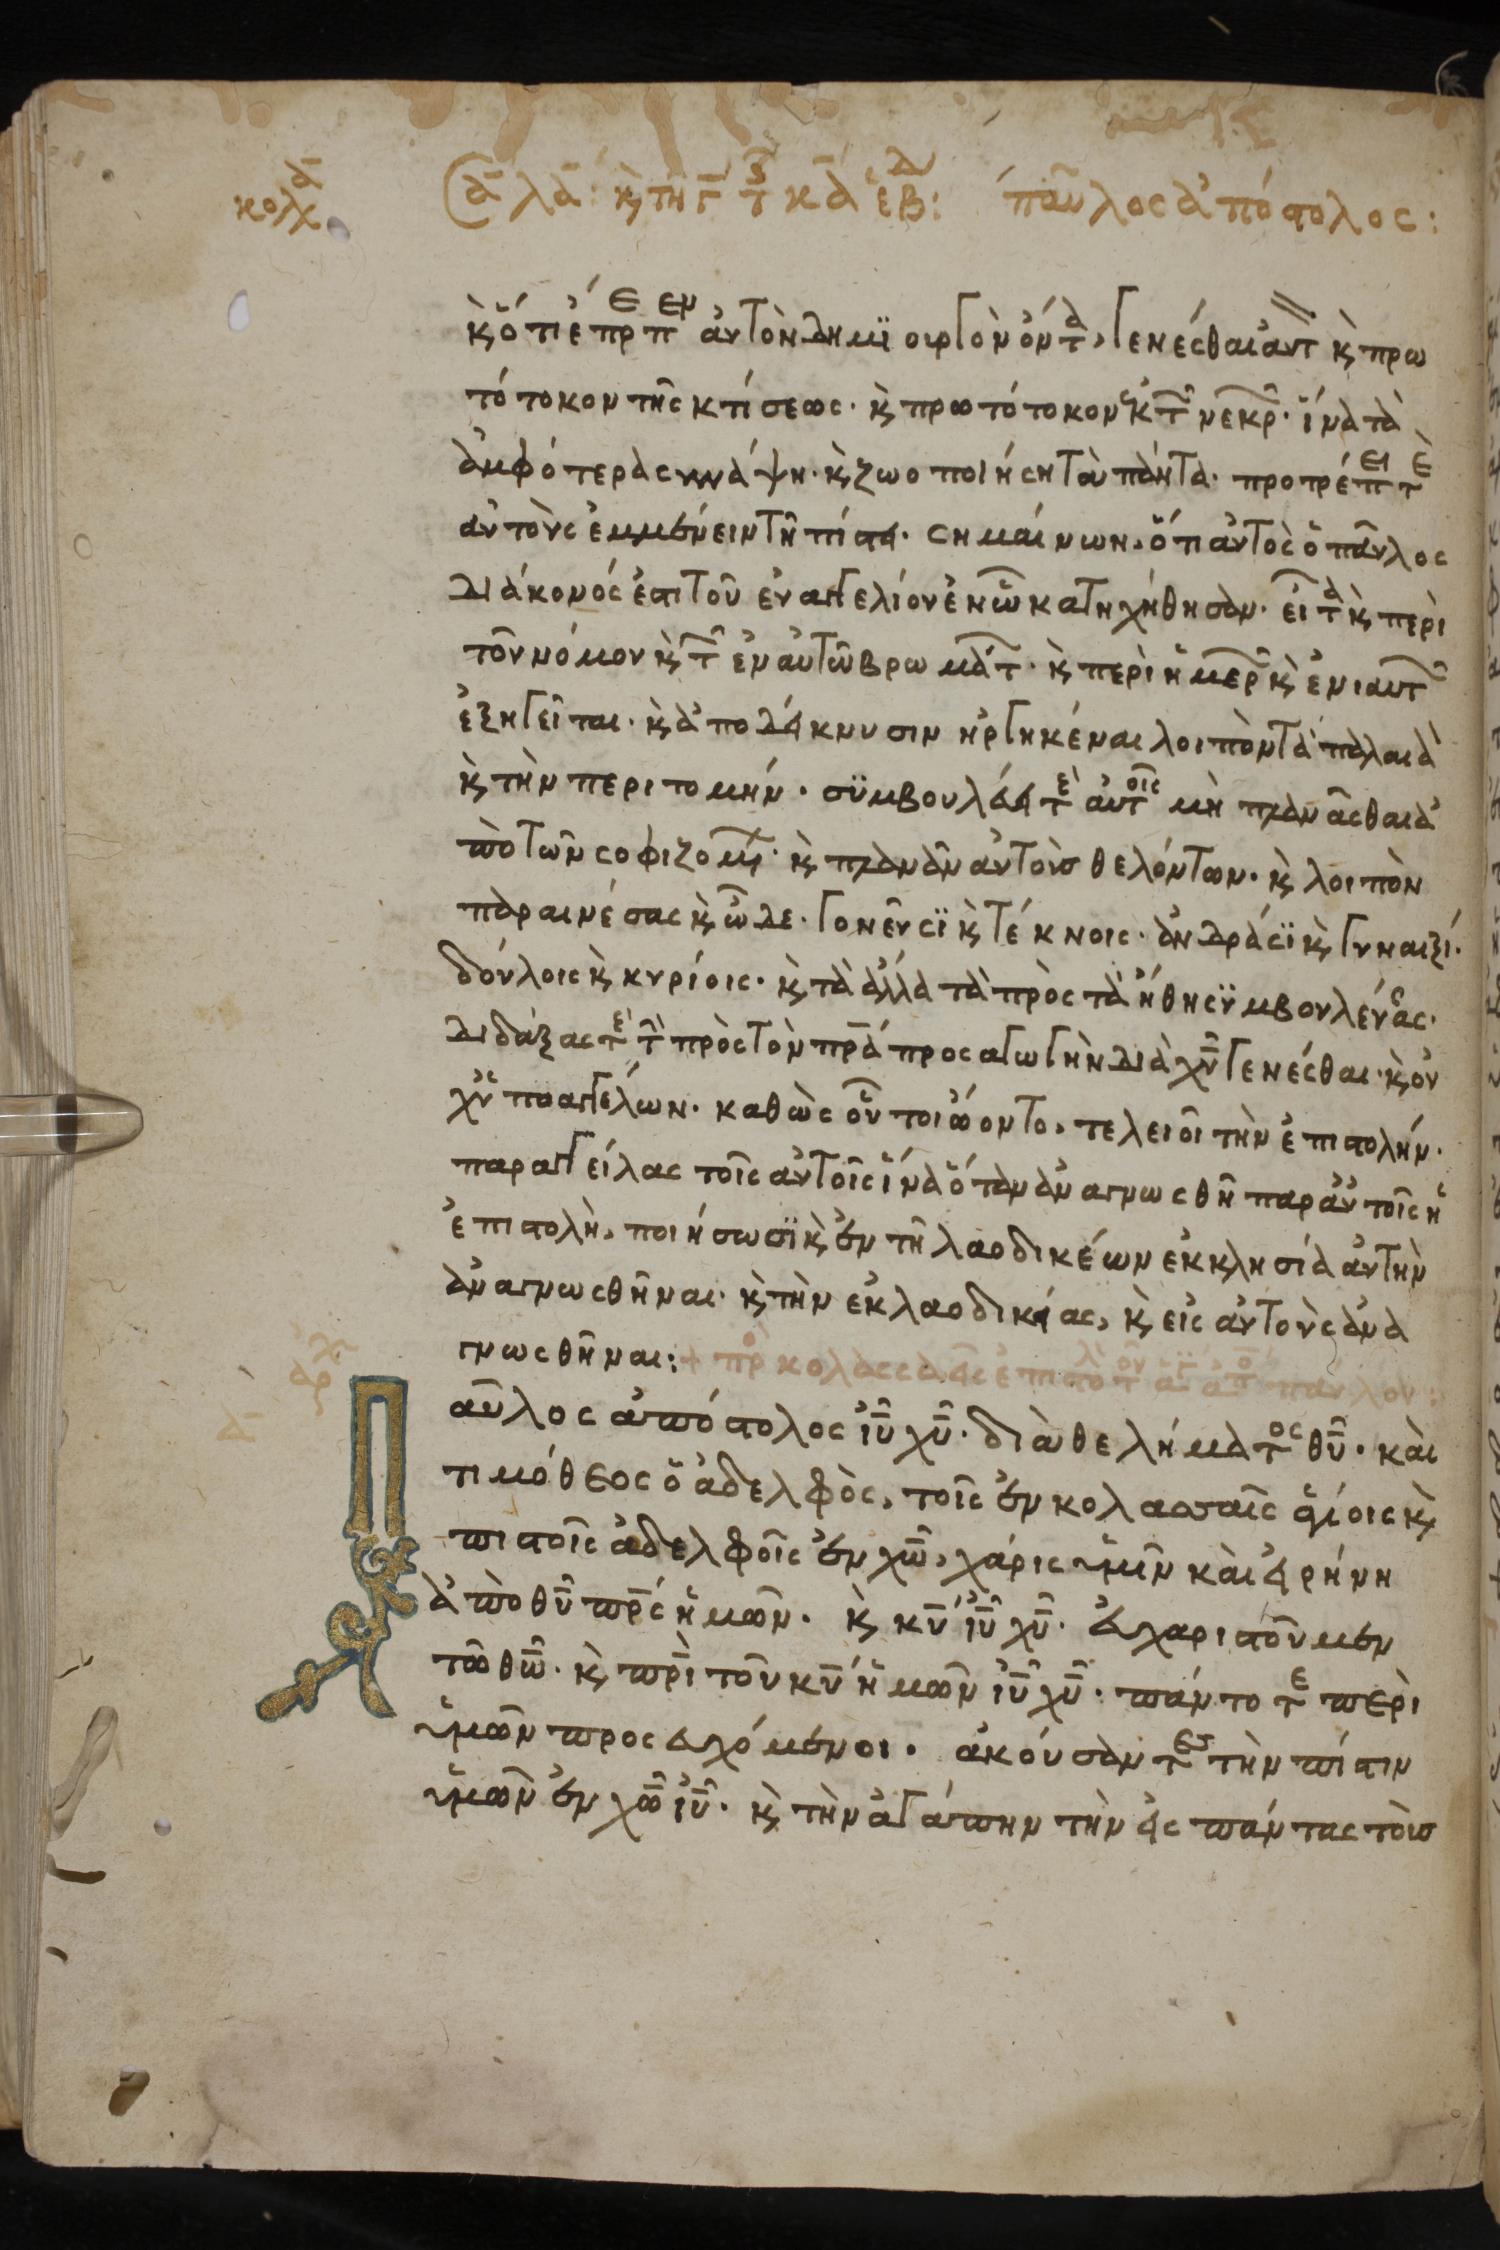 κὶ ὅτι ἔπρεπεν αὐτὸν δημϊουργὸν ὄντα, γενέσθαι αὐτ κὶ πρω
τότοκον τῆς κτίσεως· κὶ πρωτότοκον ἐκ τῶν νεκρῶν· ἵνα τὰ
ἀμφότερα συνάψη· κὶ ζωοποιήση τὰ πάντα· προτρέπει τε
αὐτοὺς ἐμμένειν τῆ πίστει· σημαίνων, ὅτι αὐτὸς ὁ παῦλος
διάκονός ἐστι τοῦ εὐαγγελίου ἐν ὧ κατηχήθησαν· εἶτα κὶ περὶ
τοῦ νόμου κὶ τῶν ἐν αὐτῶ βρωμάτων· κὶ περὶ ἡμερῶν κὶ ἐνιαυτῶν
ἐξηγεῖται· κὶ ἀποδείκνυσιν ἠργηκέναι λοιπὸν τὰ παλαιὰ
κὶ τὴν περιτομήν· συμβουλεύει τε αὐτοῖς μὴ πλανᾶσθαι ἀ
πὸ τῶν σοφιζομένων· κὶ πλανᾶν αὐτοὺς θελόντων· κὶ λοιπὸν
παραινέσας κὶ ὧδε· γονεῦσϊ κὶ τέκνοις· ἀνδράσϊ κὶ γυναιξί·
δούλοις κὶ κυρίοις· κὶ τὰ ἄλλα τὰ πρὸς τὰ ἤθη συμβουλεύσας·
διδάξας τε τὴν πρὸς τὸν πρα προσαγωγὴν διὰ χυ γενέσθαι· κὶ οὐ
χ ὑπο αγγέλων· καθὼς οὖν τοι ὤοντο, τελειοῖ τὴν ἐπιστολήν·
παραγγείλας τοῖς αὐτοῖς ἵνα ὅταν ἀναγνωσθῆ παρ αὐτοῖς ἡ
ἐπιστολὴ, ποιήσωσϊ κὶ ἐν τῆ λαοδικέων ἐκκλησία αὐτὴν
ἀναγνωσθῆναι· κὶ τὴν ἐκ λαοδικείας, κὶ εἰς αὐτοὺς ἀνα
γνωσθῆναι: + πρὸ κολασσαεῖς ἐπιστολὴ τοῦ ἁγίου ἀπο παύλου:
Παῦλος ἀπόστολος ἰυ χυ· διὰ θελήματος θυ· καὶ
τιμόθεος ὁ ἀδελφὸς, τοῖς ἐν κολασσαῖς ἁγίοις κὶ
πιστοῖς ἀδελφοῖς ἐν χω, χάρις ὑμῖν καὶ εἰρήνη
ἀπὸ θυ πρς ἡμῶν· κὶ κυ ἰυ χυ· εὐχαριστοῦμεν
τῶ θω· κὶ πρι τοῦ κυ ἡμῶν ἰυ χυ· πάντοτε περὶ
ὑμῶν προσευχόμενοι· ἀκούσαντες τὴν πίστιν
ὑμῶν ἐν χω ἰυ· κὶ τὴν ἀγάπην τὴν εἰς πάντας τοὺς